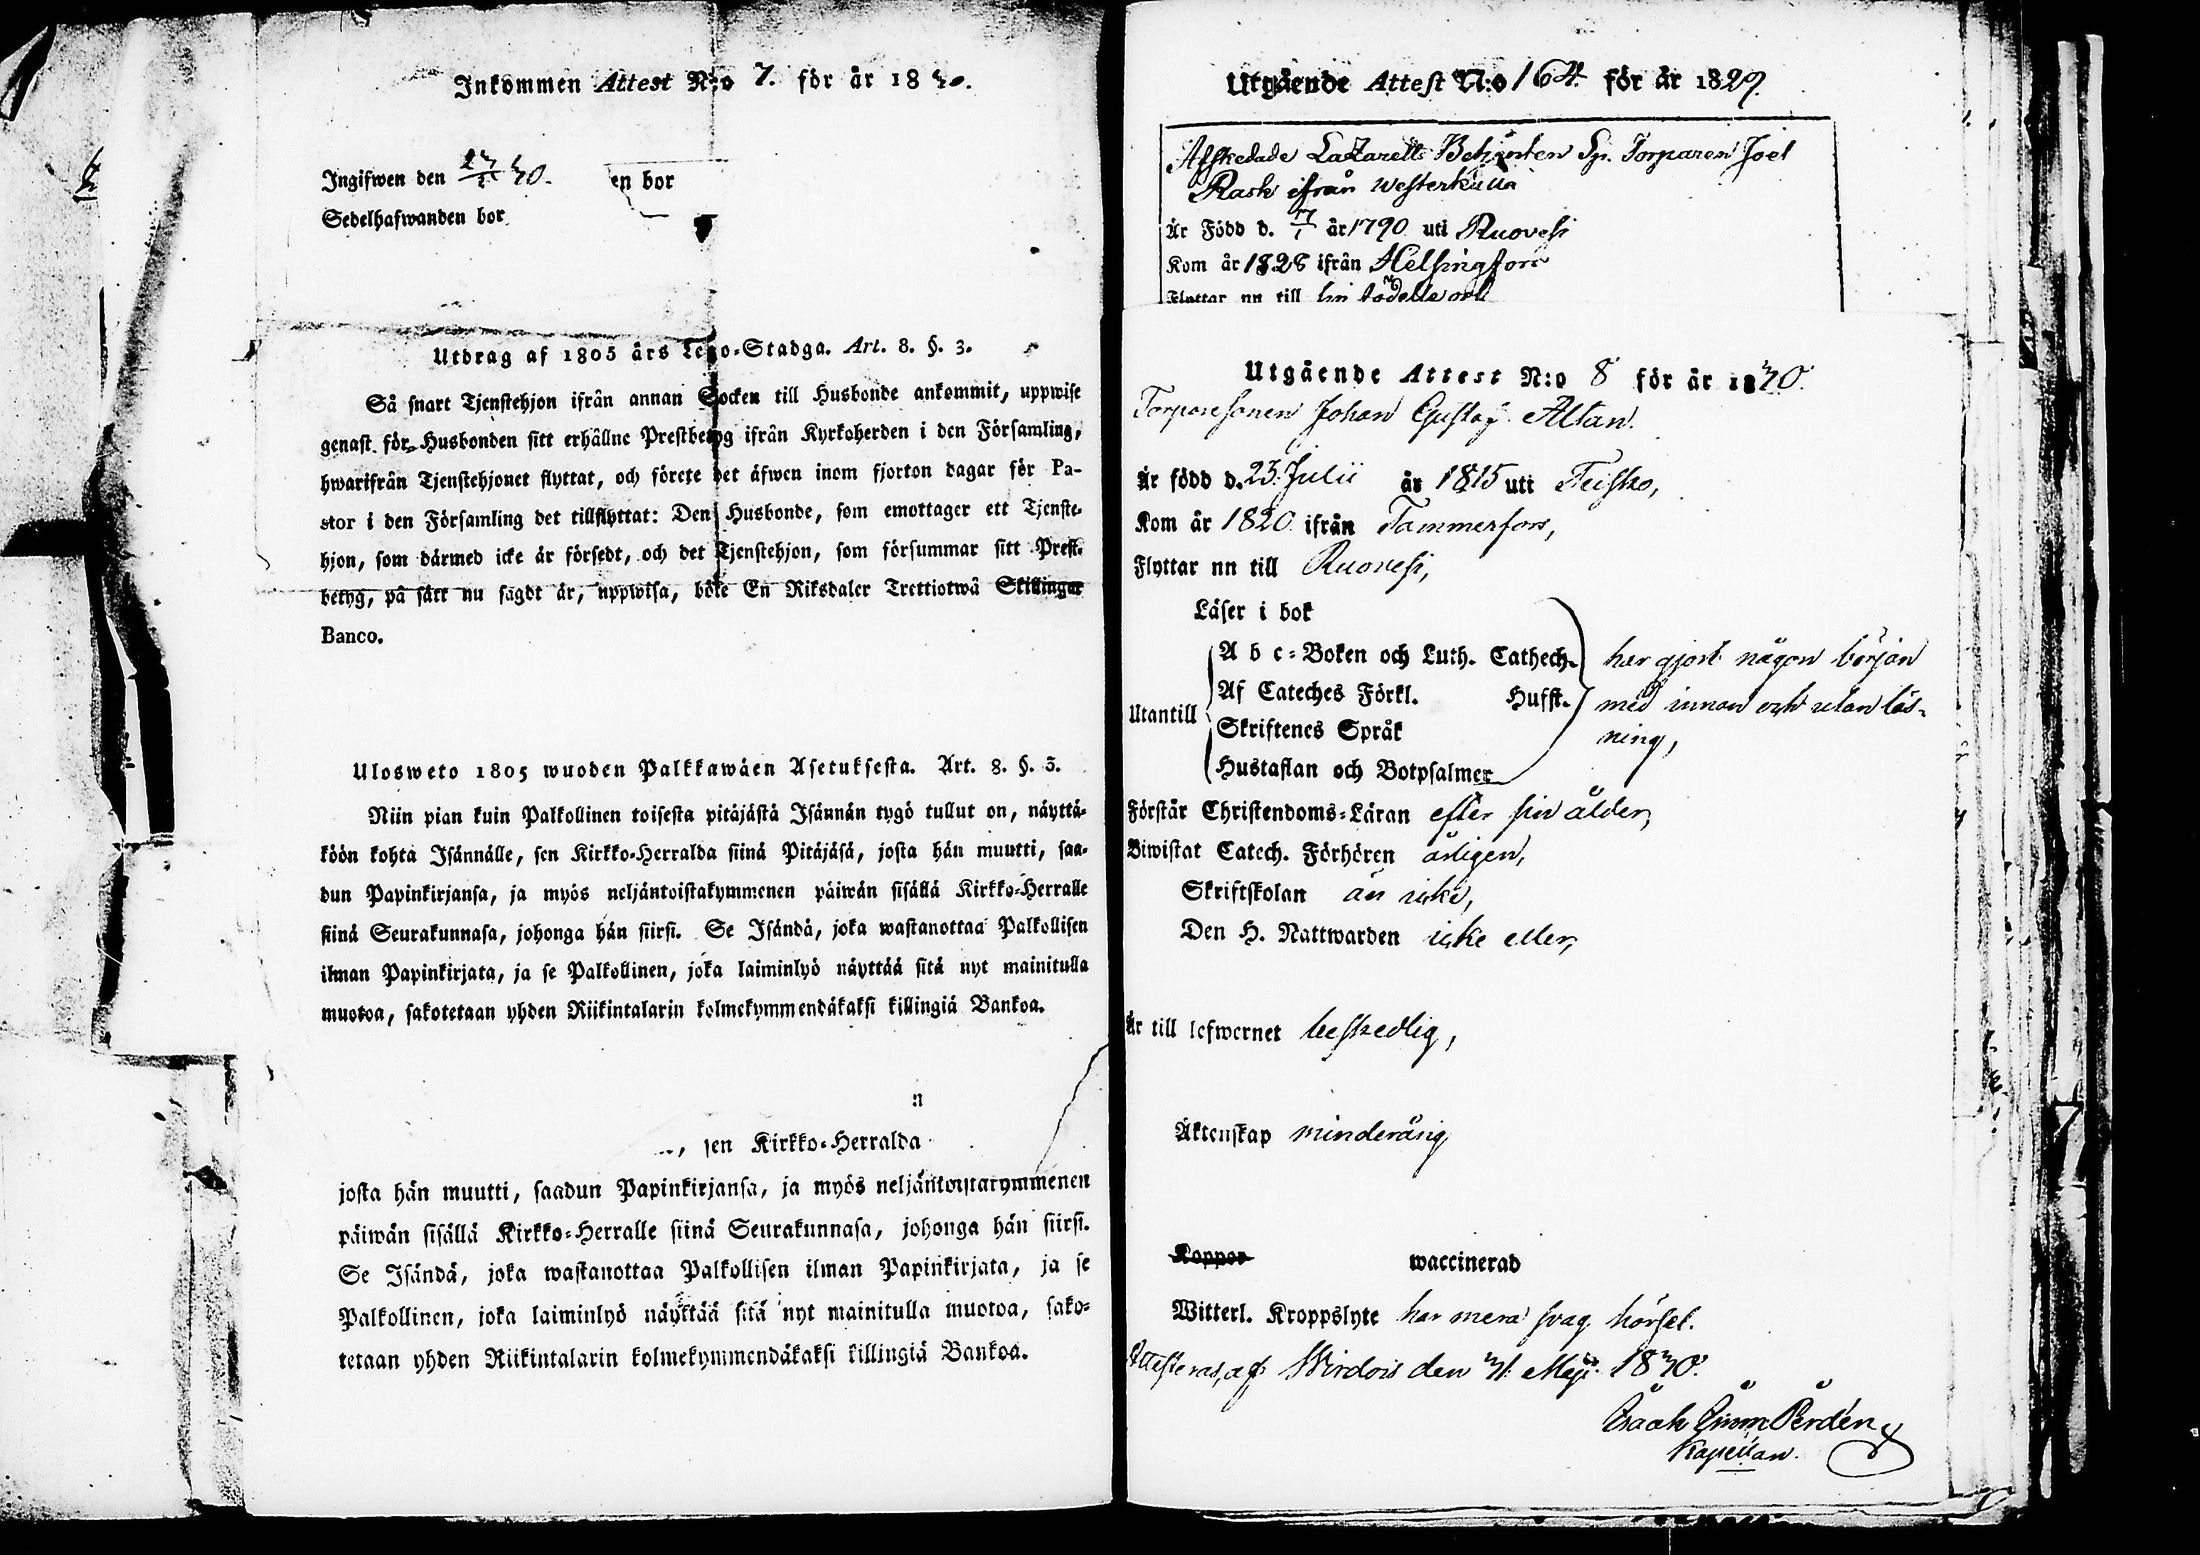 Inkommen Attest N:o 7. för år 1830.
Ingifwen den 30.
en bor
Sedelhafwanden bor
Utdrag af 1805 års Lego-Stadga. Art. 8. §. 3.
Så snart Tjenstehjon ifrån annan Socken till Husbonde ankommit, uppwise
genast för Husbonden sitt erhållne Prestbetyg ifrån Kyrkoherden i den Församling,
hwarifrån Tjenstehjonet flyttat, och förete det äfwen inom fjorton dagar för Pa-
stor i den Församling det tillflyttat: Den Husbonde, som emottager ett Tjenste-
hjon, som därmed icke är försedt, och det Tjenstehjon, som försummar sitt Prest-
betyg, på sätt nu sagdt är, uppwisa, böte En Riksdaler Trettiotwå Skillingar
Banco.
Ulosweto 1805 wuoden Palkkawäen Asetuksesta. Art. 8. §. 3.
Niin pian kuin Palkollinen toisesta pitäjästä Isännän tygö tullut on, näyttä-
köön kohta Isännälle, sen Kirkko-Herralda siinä Pitäjäsä, josta hän muutti, saa-
dun Papinkirjansa, ja myös neljäntoistakymmenen päiwän sisällä Kirkko-Herralle
siinä Seurakunnasa, johonga hän siirsi. Se Isändä, joka wastanottaa Palkollisen
ilman Papinkirjata, ja se Palkollinen, joka laiminlyö näyttää sitä nyt mainitulla
muotoa, sakotetaan yhden Riikintalarin kolmekymmendäkaksi killingiä Bankoa.
n
, sen Kirkko-Herralda
josta hän muutti, saadun Papinkirjansa, ja myös neljäntoistakymmenen
päiwän sisällä Kirkko-Herralle siinä Seurakunnasa, johonga hän siirsi.
Se Isändä, joka wastanottaa Palkollisen ilman Papinkirjata, ja se
Palkollinen, joka laiminlyö näyttää sitä nyt mainitulla muotoa, sako-
tetaan yhden Riikintalarin kolmekymmendäkaksi killingiä Bankoa.
Utgående Attest N:o 164. för år 1829.
Afskedade Lazaretts Betjenten Sp. Torparen Joel
Rask ifrån Westerkulla
Är Född d. 7/1 år 1790 uti Ruovesi
Kom år 1828 ifrån Helsingfors
Flyttar nu till sin födelse ort
Utgående Attest N:o 8 för år 1830.
Torparesonen Johan Gustaf Altan.
Är född d. 23. Julii år 1815 uti Teisko,
Kom år 1820 ifrån Tammerfors,
Flyttar nn till Ruovesi,
Läser i bok
A b c-Boken och Luth. Cathech. har gjort någon början
Utantill Af Cateches Förkl. Husst. med innan och utan läs-
Skriftenes Språk ning,
Hustaflan och Botpsalmer
Förstår Christendoms-Läran efter sin ålder,
Biwistat Catech. Förhören årligen,
Skriftskolan än icke,
Den H. Nattwarden icke eller,
Är till lefwernet beskedlig,
Äktenskap minderårig
Koppor waccinerad
Witterl. Kroppslyte har mera svag hörsel.
Attesteras, af Wirdois den 31. Maji 1830.
Isaak Perdén
Kapellan.